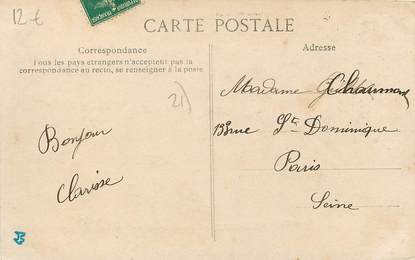 12 €
CARTE POSTALE
Correspondance
Tous les pays étrangers n'acceptent pas la
correspondance au recto, se renseigner à la poste
Adresse
21)
Bonjour
Clarisse
Madame Chaumond
rue Ste Dominique
Paris
Seine